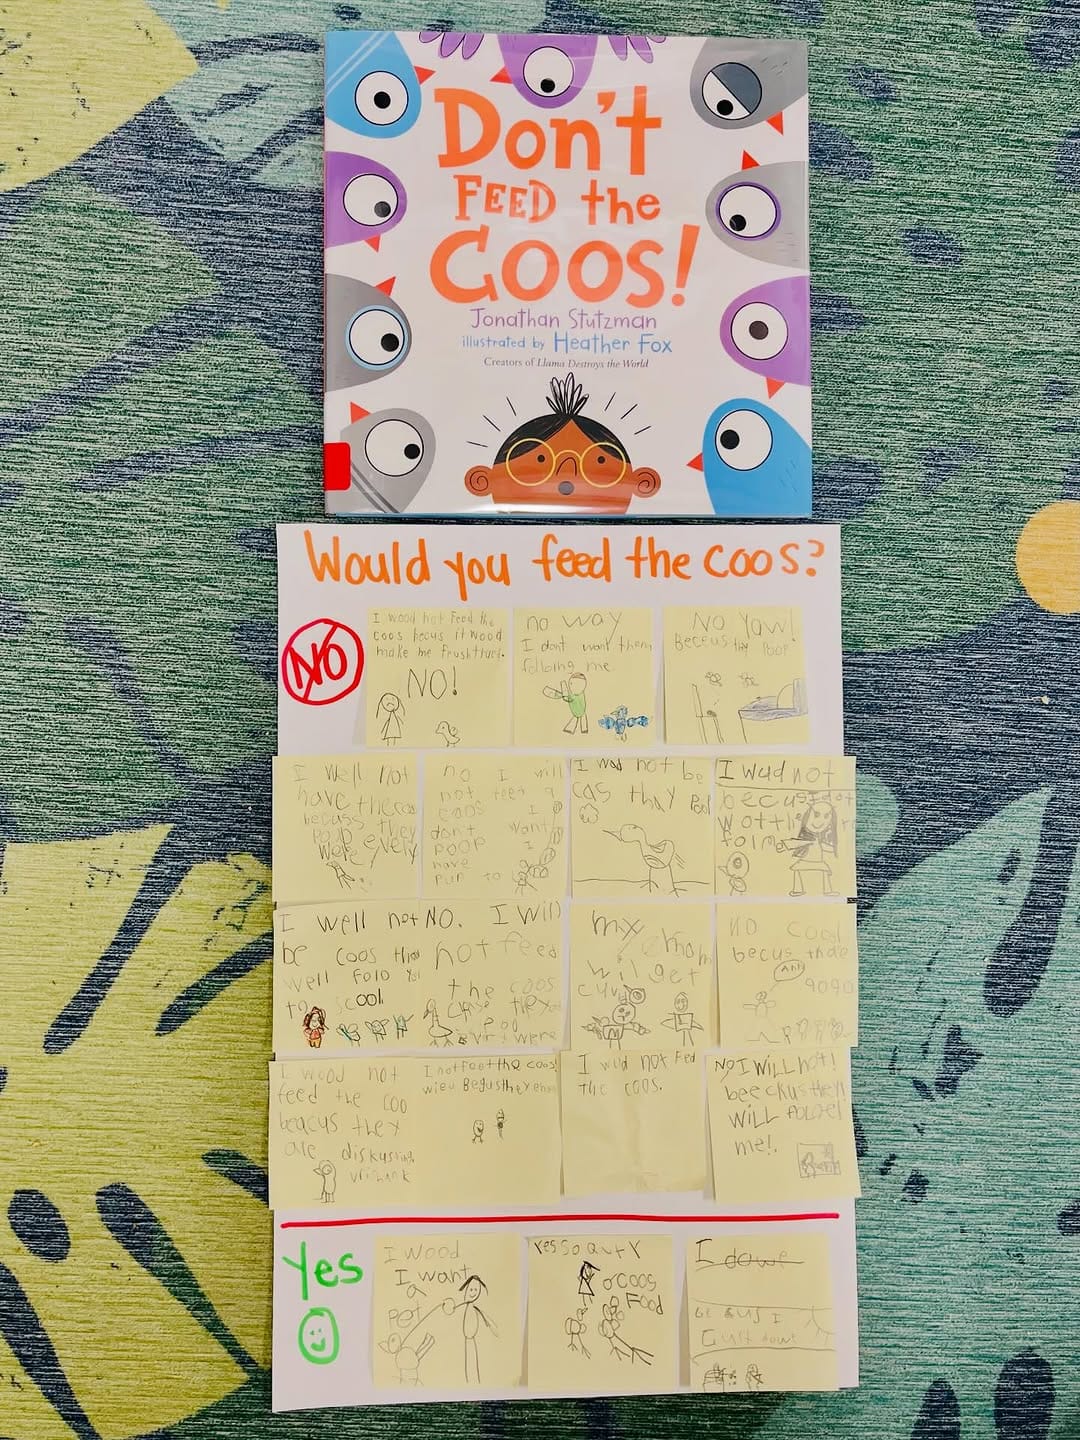 Don't
FEED the
COOS!
Jonathan Stutzman
illustrated by Heather Fox
Creators of Llama Destroys the World
Would you feed the coos?
NO
I wood not feed the
coos becus it wood
make me frushtrted.
NO!
no way
I dont want them
folloing me
No Yaw!
Beceus thy poop
I well not
have the coos
becuss they
poop every
were
no I will
not feet a
coos I
don't want
poop I
have
run to
I wud not be
cas thay poop
I wud not
becus I dot
wot the
folme
I well not NO.
be coos they
well folo you
to scool
I will
not feed
the coos
cuse they
poo
evirywere
my mom
wil get
NO coos
becus thde
Ahh
gogo
I wood not
feed the coo
beacus they
are diskusting
I not feet the coos!
I wud not Fed
the coos.
No I WILL not!
beeckus they
WILL folow
me!
Yes
I wood
I want
a
pet
Yes So auty
coos
Food
I dowe
be cus I
dowe